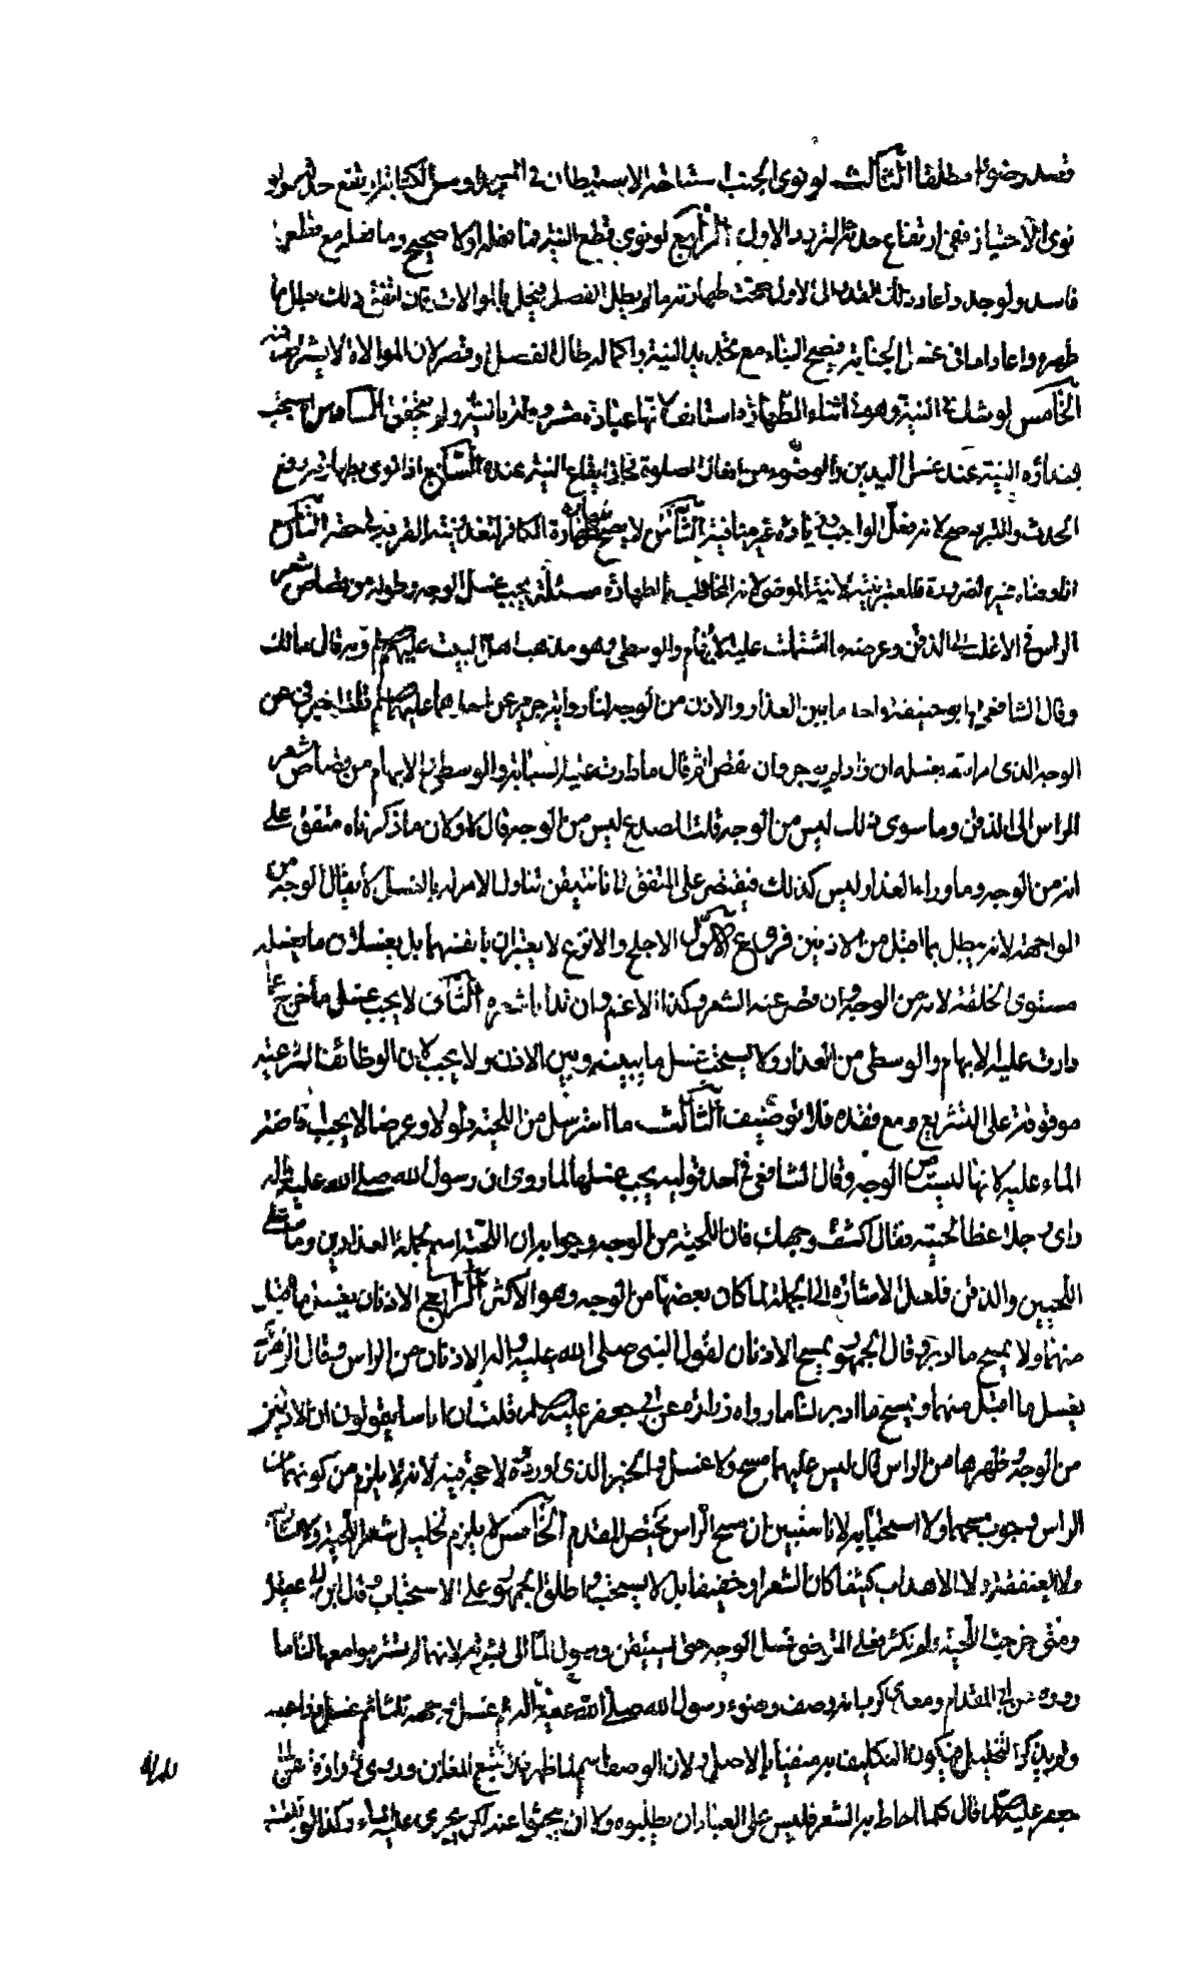 قصد وضوءا مطلقا الثالث لو نوى الجنب استباحة الاستيطان في المسجد او مس الكتابة ارتفع حدثه ولو
نوى الاجتياز ففي ارتفاع حدثه تردد الاول الرابع لو نوى قطع النية فما فعله اولا صحيح وما فعله مع قطعها
فاسد ولو جدد اعادة ذلك القدر الى الاول صحت طهارته ما لم يطل الفصل فيخل بالموالاة فان اتفق ذلك بطل ما
طهره واعاد اما في غسل الجنابة فيصح البناء مع تجديد النية واكماله طال الفصل او قصر لان الموالاة لا يشترط فيه
الخامس لو شك في النية وهو في اثناء الطهارة استانف لانها عبادة مشروطة بالنية ولم يتحقق السادس يستحب
ابتداؤه النية عند غسل اليدين والوضوء من افعال الصلوة فجاز ايقاع النية عنده السابع اذا نوى بطهارته رفع
الحدث والتبرد صح لانه فعل الواجب وزيادة غير منافية الثامن لا يصح طهارة الكافر لتعذر نية القربة في حقه التاسع
اذا وضاه غيره لضرورة فالمعتبر نيته لا نية الموضي لانه المخاطب بالطهارة مسئلة يجب غسل الوجه وطوله من قصاص شعر
الراس في الاغلب الى الذقن وعرضه ما اشتملت عليه الابهام والوسطى وهو مذهب اهل البيت عليهم السلم وبه قال مالك
وقال الشافعي وابو حنيفة واحمد ما بين العذار والاذن من الوجه لنا رواية حريز عن احدهما عليهما السلم قلت اخبرني عن
الوجه الذى امر الله بغسله ان زاد لم يوجر وان نقص اثم قال ما دارت عليه السبابة والوسطى والابهام من قصاص شعر
الراس الى الذقن وما سوى ذلك ليس من الوجه قلت الصدغ ليس من الوجه قال لا ولان ما ذكرناه متفق على
انه من الوجه وما وراء العذار ليس كذلك فيقتصر على المتفق لانا نتيقن تناول الامر له بالغسل لا يقال الوجه من
المواجهة لانه يبطل بما اقبل من الاذنين فروع الاول الاجلح والانزع لا يعتبران بانفسهما بل يغسلان ما يغسله
مستوى الخلقة لانه من الوجه وان قصر عنه الشعر وكذا الاغم وان تدلى شعره الثاني لا يجب غسل ما خرج عما
دارت عليه الابهام والوسطى من العذار ولا يستحب غسل ما بينه وبين الاذن ولا يجب لان الوظائف الشرعية
موقوفة على التشريع ومع فقده فلا توظيف الثالث ما استرسل من اللحية طولا وعرضا لا يجب افاضة
الماء عليه لانها ليست من الوجه وقال الشافعي في احد قوليه يجب غسلها لما روى ان رسول الله صلى الله عليه واله
راى رجلا غطا لحيته فقال اكشف وجهك فان اللحية من الوجه وجوابه ان اللحية اسم لجملة العذارين وما على
اللحيين والذقن فلعل الاشارة الى الجملة لما كان بعضها من الوجه وهو الاكثر الرابع الاذنان يغسل ما قبل
منهما ولا يمسح ما ادبر وقال الجمهور يمسح الاذنان لقول النبي صلى الله عليه واله الاذنان من الراس وقال الزهرى
يغسل ما اقبل منهما ويمسح ما ادبر لنا ما رواه زرارة عن ابي جعفر عليه السلم قلت ان اناسا يقولون ان الاذنين
من الوجه وظهرهما من الراس قال ليس عليهما مسح ولا غسل والخبر الذى اوردوه لا حجة فيه لانه لا يلزم من كونهما من
الراس وجوب مسحهما ولا استحبابه لانا سنبين ان مسح الراس يختص المقدم الخامس لا يلزم تخليل شعر اللحية ولا الشارب
ولا العنفقة ولا الاهداب كثيفا كان الشعر او خفيفا بل لا يستحب واطلق الجمهور على الاستحباب وقال ابن ابي عقيل
ومتى خرجت اللحية ولم تكثر فعلى المتوضي غسل الوجه حتى يستيقن وصول الماء الى بشرته لانها لم تستر مواضعها لنا ما
وردة عن ابي المقدام ومعاوي كرب انه وصف وضوء رسول الله صلى الله عليه واله ثم غسل وجهه ثلثا ثم غسل ذراعيه
ولم يذكر التخليل فيكون التكليف به منفيا بالاصل ولان الوصف اسم لما ظهر فلا يتبع المغابن وروى زرارة عن ابي
جعفر عليه السلم قال كلما احاط به الشعر فليس على العباد ان يطلبوه ولا ان يبحثوا عنه لكن يجرى عليه الماء وكذا لو